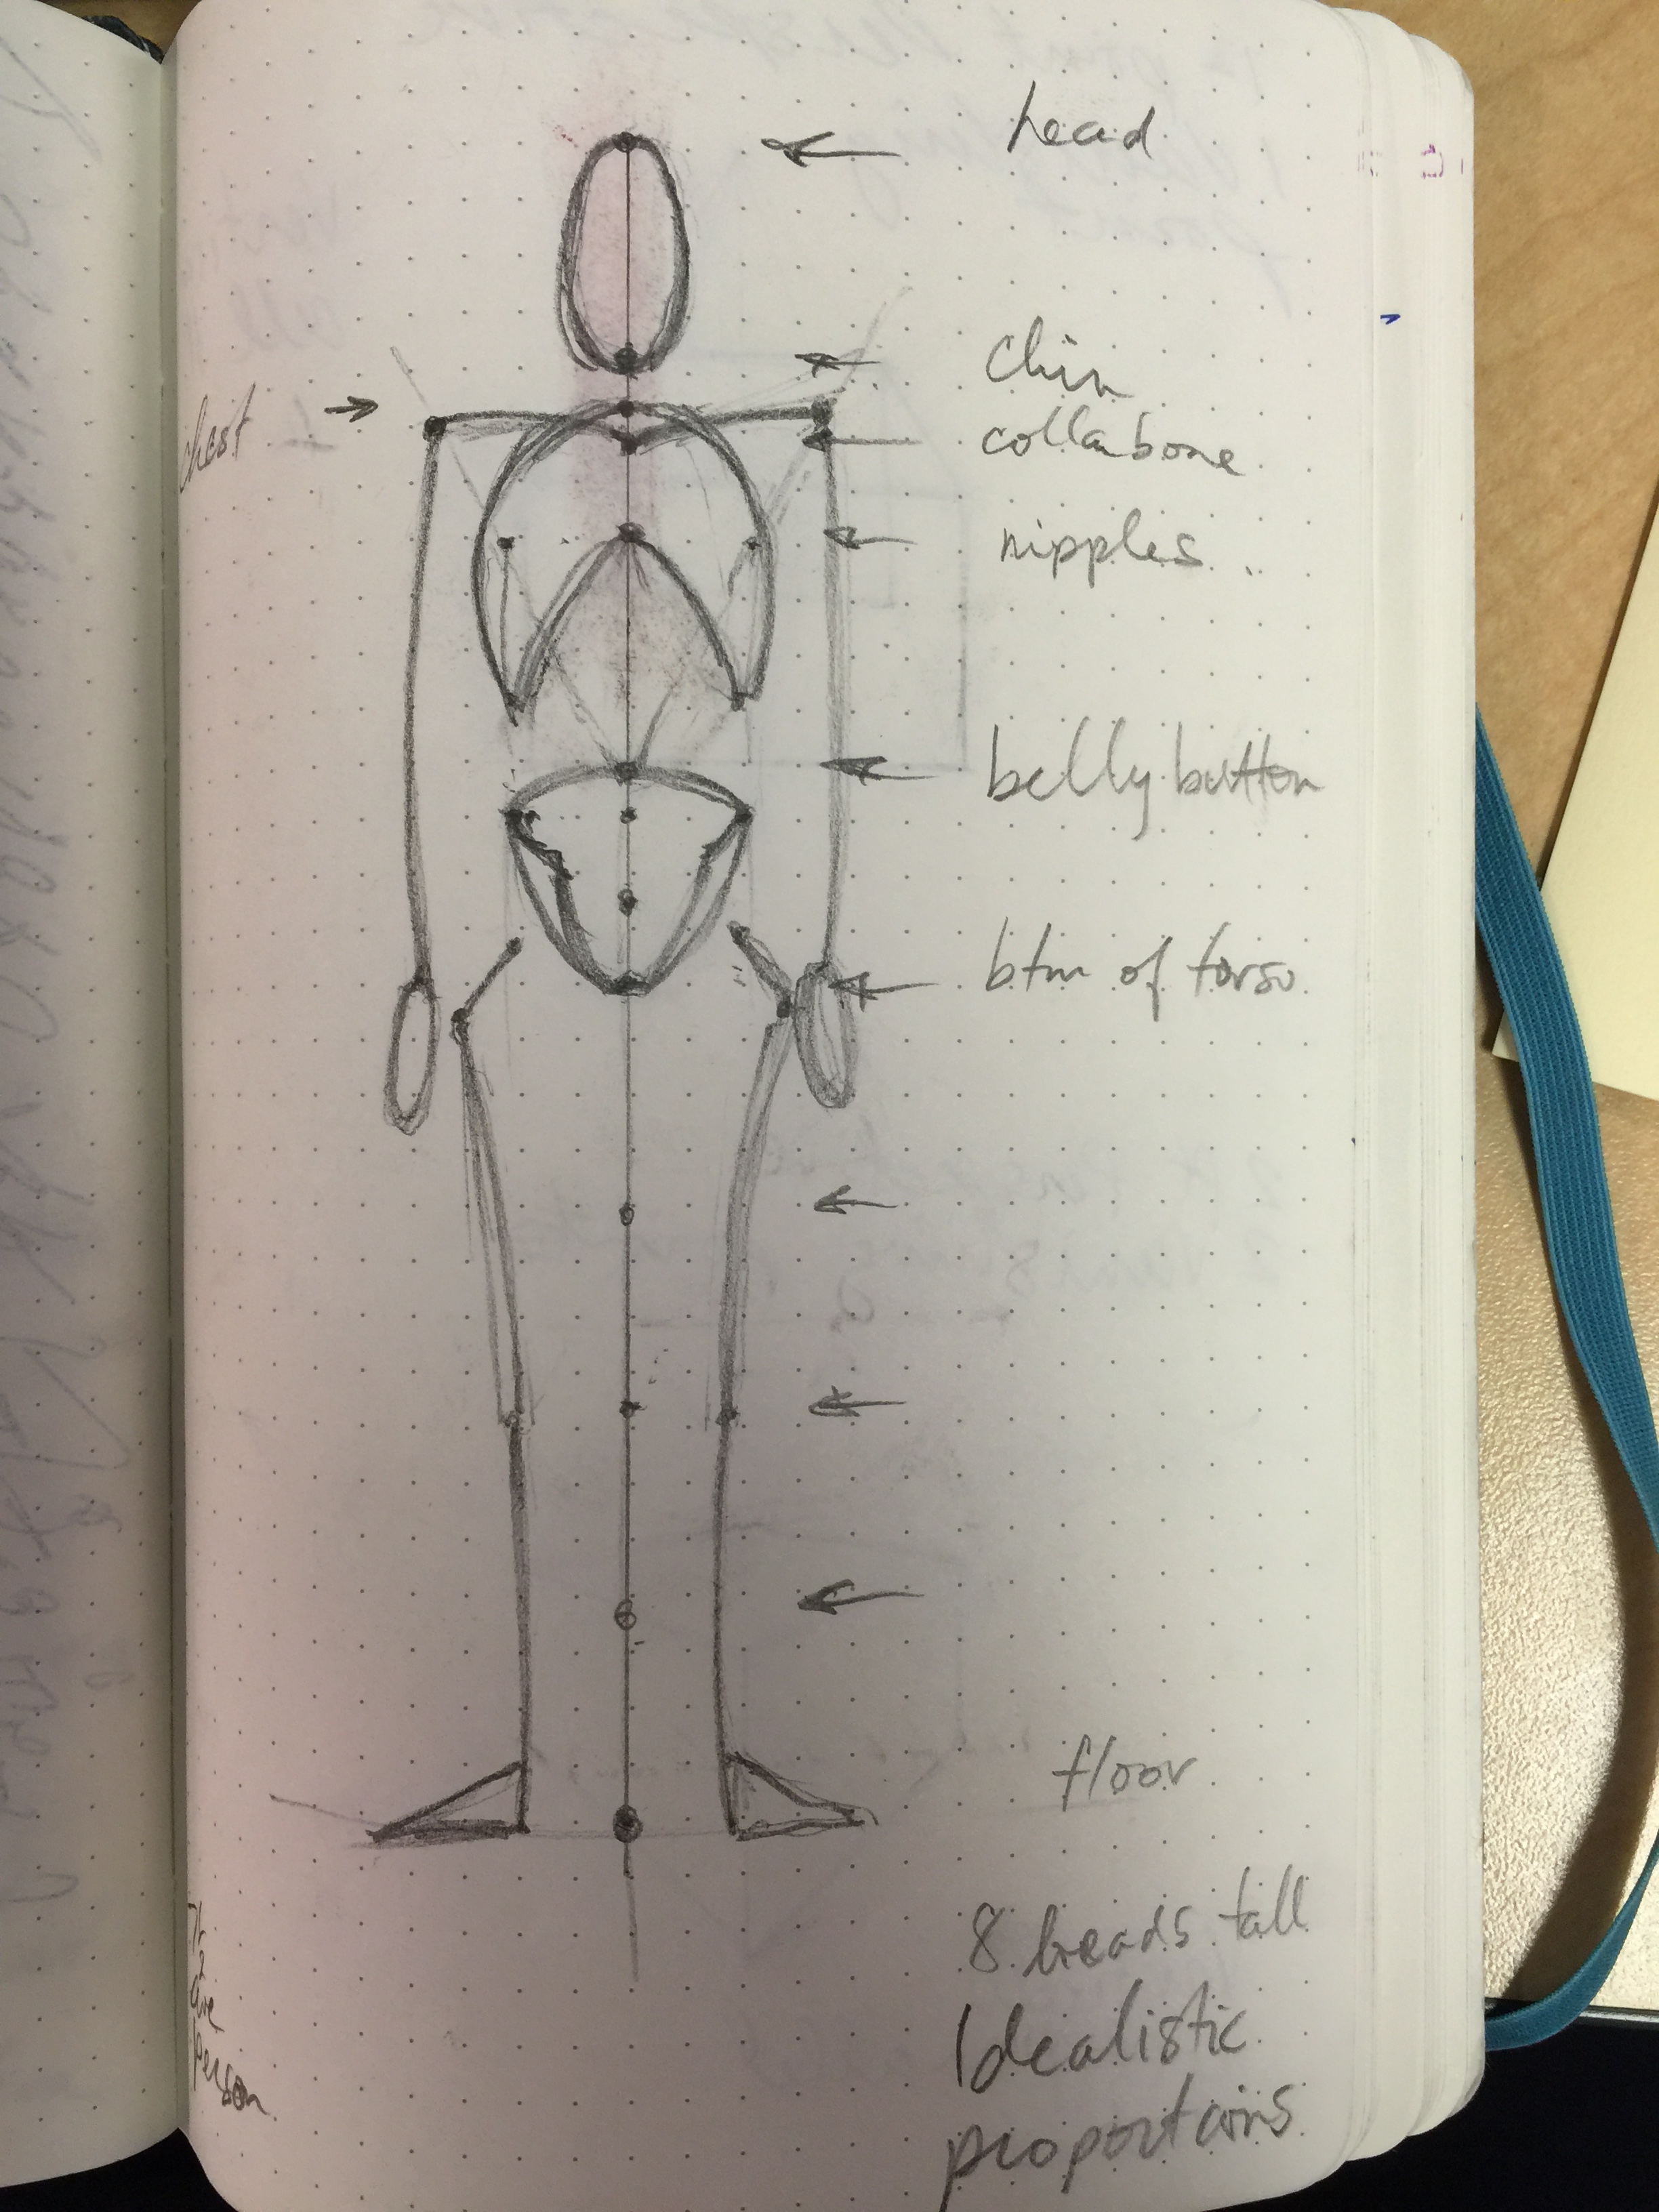 head
chin
chest
collarbone
nipples
belly button
btm of torso
floor
8 heads tall
Idealistic
proportions
7½
ave
person